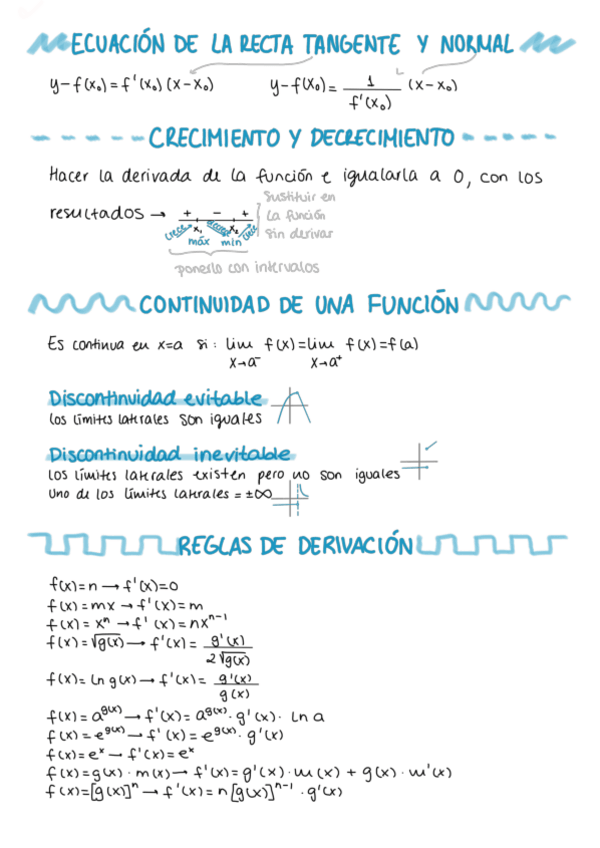 ECUACIÓN DE LA RECTA TANGENTE Y NORMAL
y-f(x₀)=f'(x₀)(x-x₀) y-f(x₀)= 1/f'(x₀) (x-x₀)
CRECIMIENTO Y DECRECIMIENTO
Hacer la derivada de la función e igualarla a 0, con los
resultados → + - + Sustituir en la función sin derivar
crece x₁ decrece x₂ crece
máx mín
ponerlo con intervalos
CONTINUIDAD DE UNA FUNCIÓN
Es continua en x=a si: lim f(x)=lim f(x)=f(a)
x→a⁻ x→a⁺
Discontinuidad evitable
Los límites laterales son iguales
Discontinuidad inevitable
Los límites laterales existen pero no son iguales
Uno de los límites laterales = ±∞
REGLAS DE DERIVACIÓN
f(x)=n → f'(x)=0
f(x)=mx → f'(x)=m
f(x)=xⁿ → f'(x)=nxⁿ⁻¹
f(x)=√g(x) → f'(x)= g'(x)/2√g(x)
f(x)=ln g(x) → f'(x)= g'(x)/g(x)
f(x)=a^g(x) → f'(x)=a^g(x)·g'(x)·ln a
f(x)=e^g(x) → f'(x)=e^g(x)·g'(x)
f(x)=eˣ → f'(x)=eˣ
f(x)=g(x)·m(x) → f'(x)=g'(x)·m(x)+g(x)·m'(x)
f(x)=[g(x)]ⁿ → f'(x)=n[g(x)]ⁿ⁻¹·g'(x)